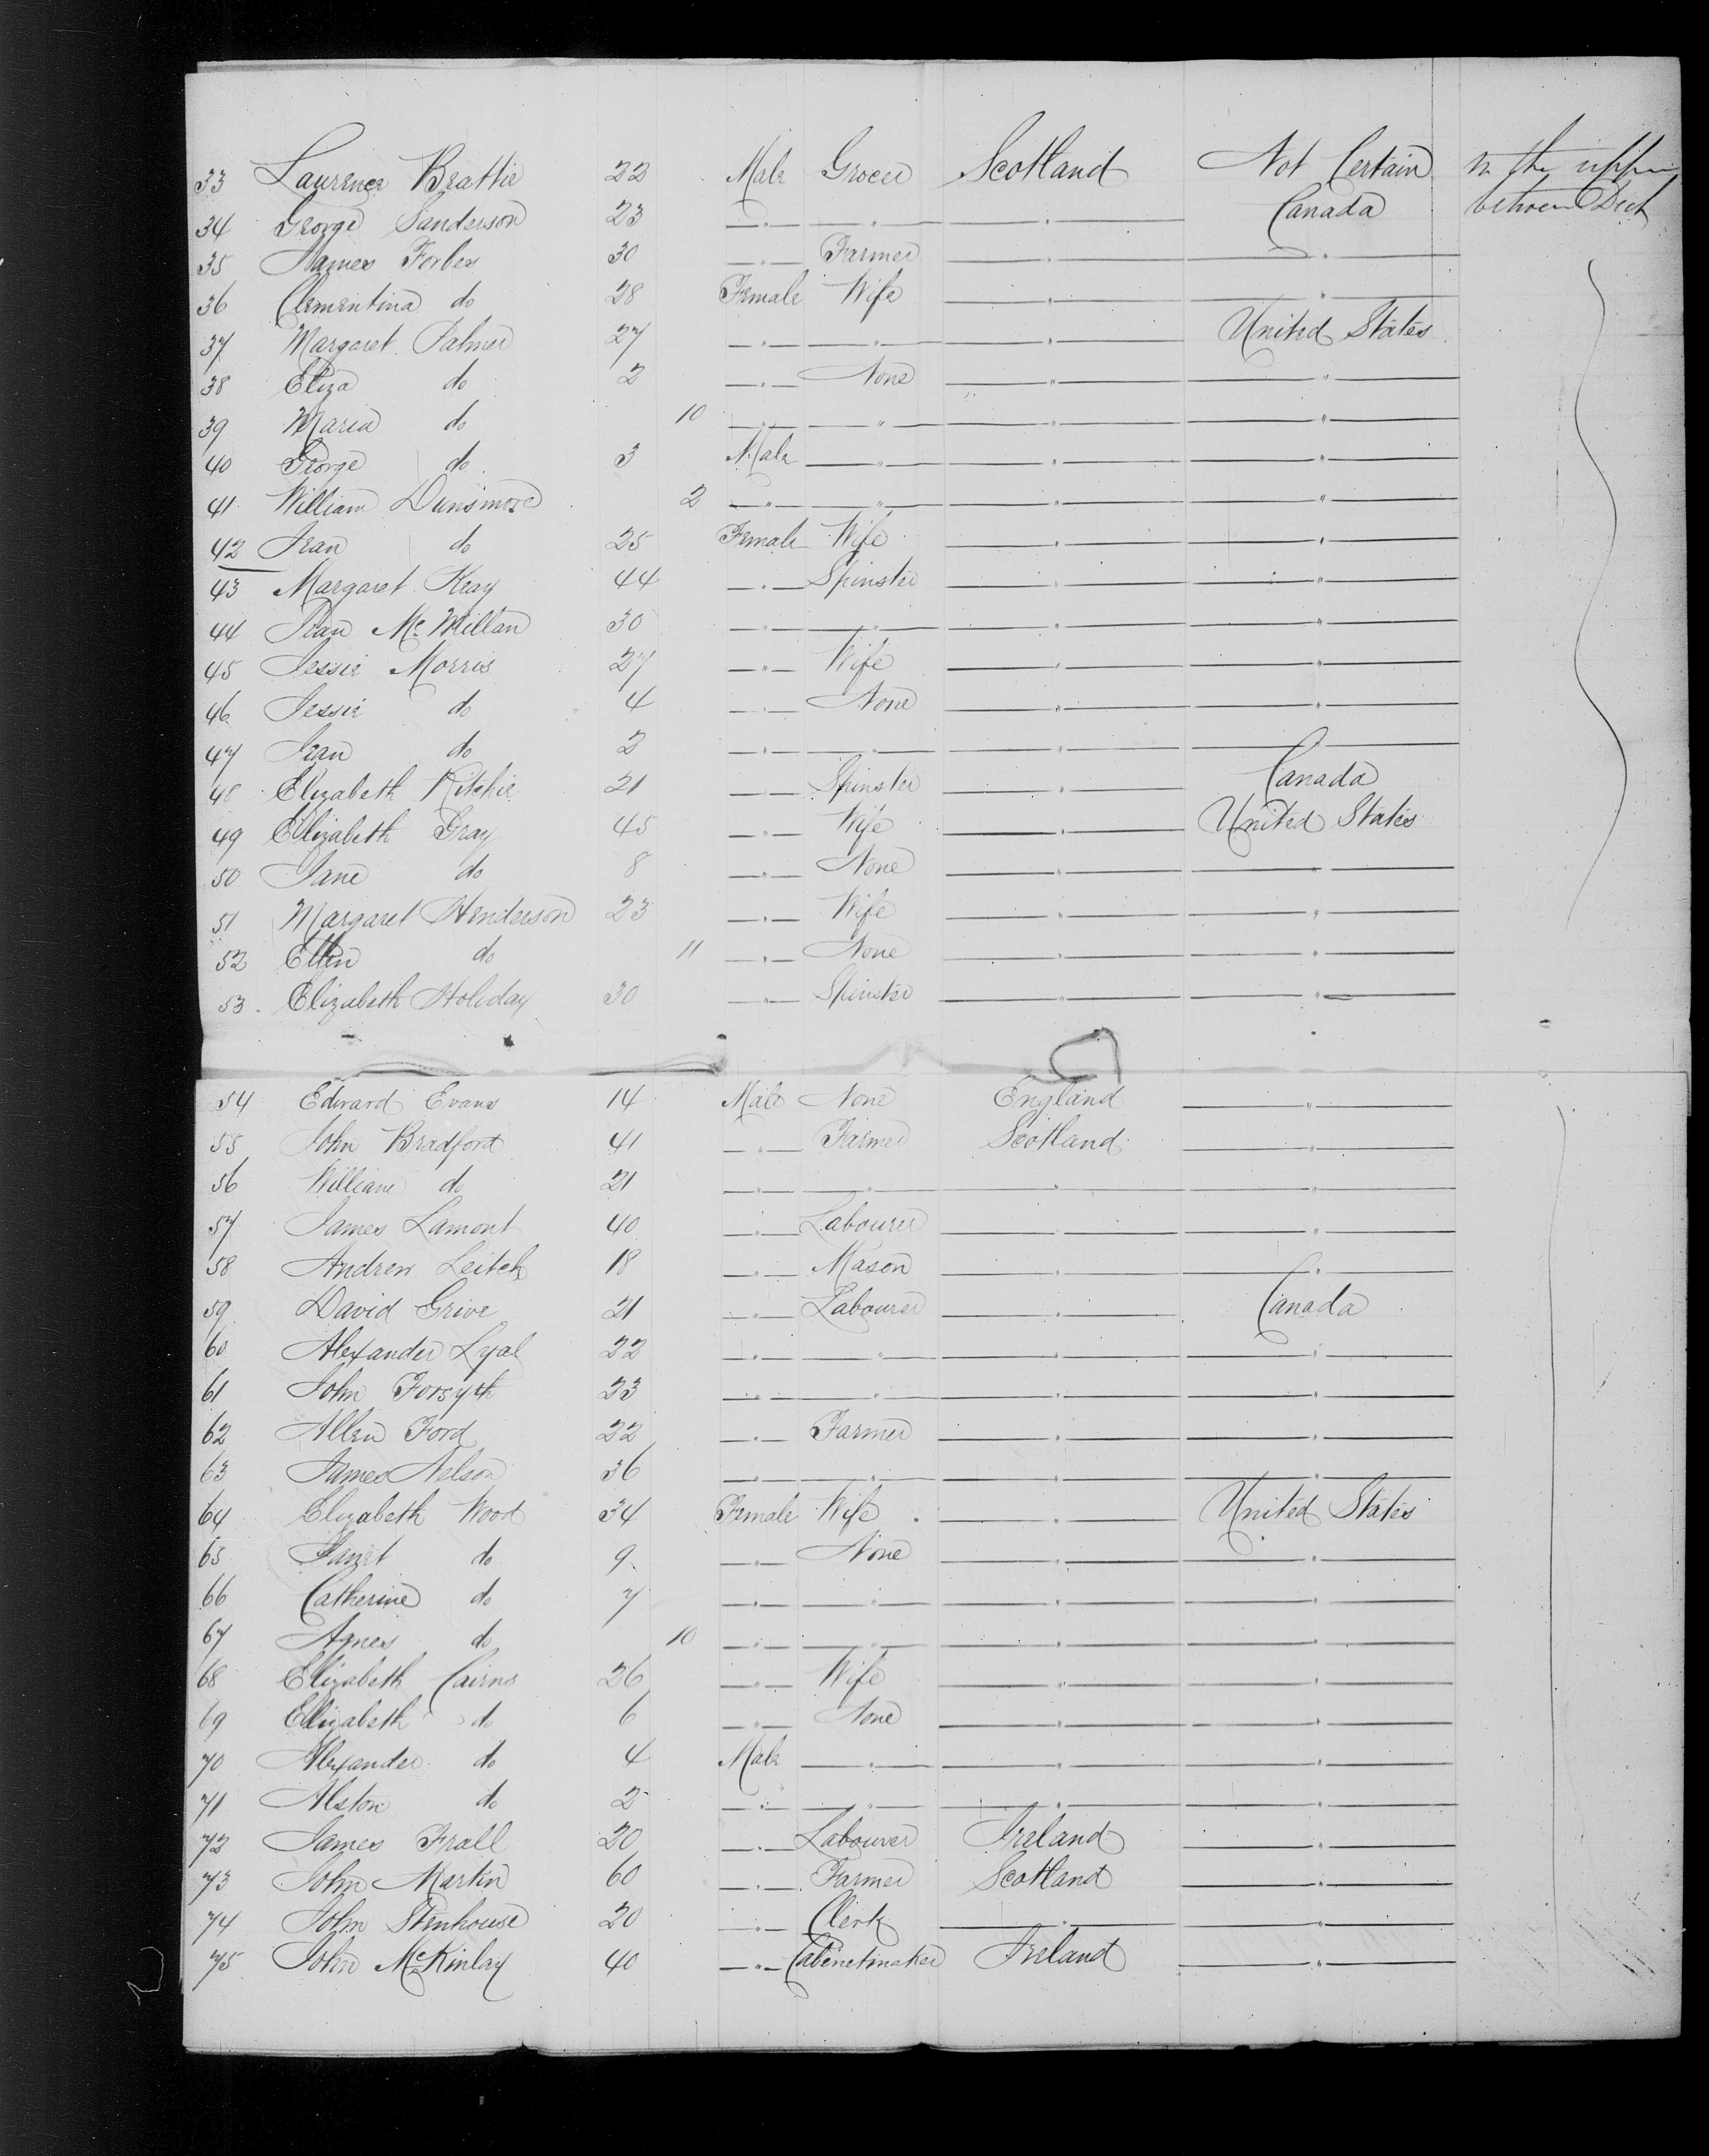 33 Laurence Beattie 22 Male Grocer Scotland Not Certain In the upper
34 George Sanderson 23 " " " Canada between Deck
35 James Forbes 30 " Farmer " "
36 Clementina do 28 Female Wife " "
37 Margaret Palmer 27 " " " United States
38 Eliza do 2 " None " "
39 Maria do 10 " " " "
40 George do 3 Male " " "
41 William Dunsmore 2 " " " "
42 Jean do 25 Female Wife " "
43 Margaret Keay 44 " Spinster " "
44 Jean McMillan 30 " " " "
45 Jessie Morris 27 " Wife " "
46 Jessie do 4 " None " "
47 Jean do 2 " " " "
48 Elizabeth Ritchie 21 " Spinster " Canada
49 Elizabeth Gray 45 " Wife " United States
50 Jane do 8 " None " "
51 Margaret Henderson 23 " Wife " "
52 Ellen do 11 " None " "
53 Elizabeth Holiday 30 " Spinster " "
54 Edward Evans 14 Male None England "
55 John Bradford 41 " Farmer Scotland "
56 William do 21 " " " "
57 James Lamont 40 " Labourer " "
58 Andrew Leitch 18 " Mason " "
59 David Grive 21 " Labourer " Canada
60 Alexander Lyal 22 " " " "
61 John Forsyth 23 " " " "
62 Allen Ford 22 " Farmer " "
63 James Nelson 36 " " " "
64 Elizabeth Wood 34 Female Wife " United States
65 Janet do 9 " None " "
66 Catherine do 7 " " " "
67 Agnes do 10 " " " "
68 Elizabeth Cairns 26 " Wife " "
69 Elizabeth do 6 " None " "
70 Alexander do 4 Male " " "
71 Alston do 2 " " " "
72 James Frall 20 " Labourer Ireland "
73 John Martin 60 " Farmer Scotland "
74 John Stenhouse 20 " Clerk " "
75 John McKinlay 40 " Cabinetmaker Ireland "